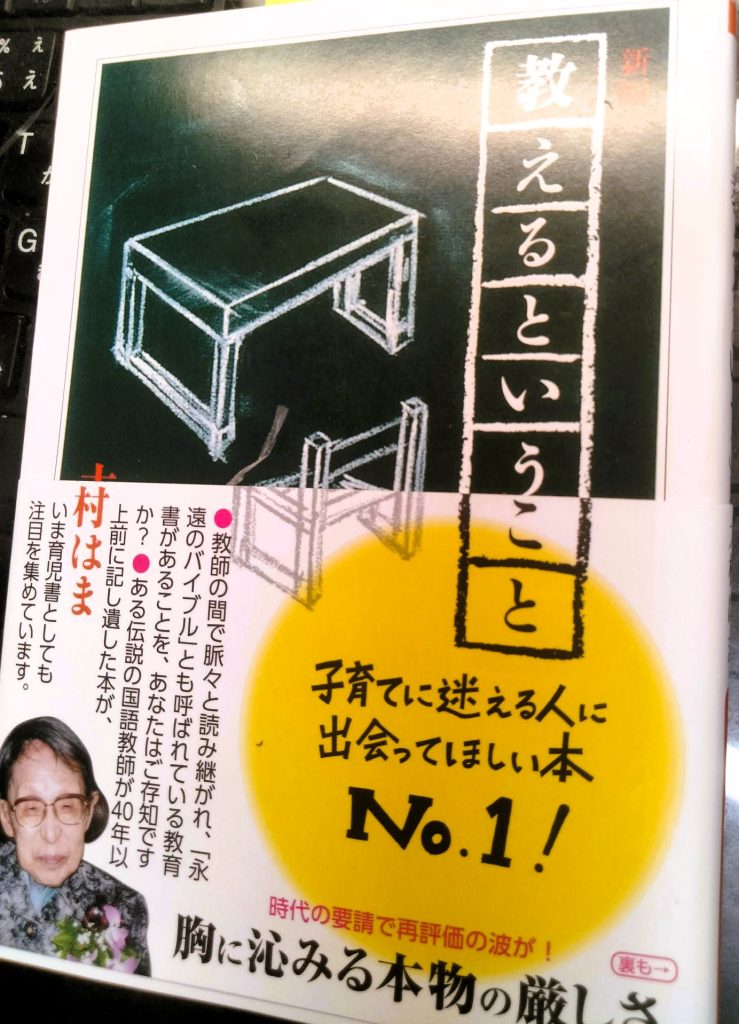 新編
教えるということ
村はま
●教師の間で脈々と読み継がれ、「永
遠のバイブル」とも呼ばれている教育
書があることを、あなたはご存知です
か？●ある伝説の国語教師が40年以
上前に記し遺した本が、
いま育児書としても
注目を集めています。
子育てに迷える人に
出会ってほしい本
No.1!
時代の要請で再評価の波が！
胸に沁みる本物の厳しさ
裏も→
% え
え
T
か
G